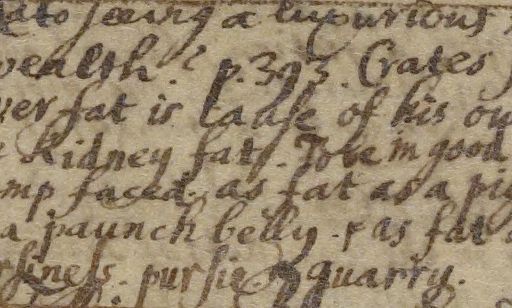 to seeing a luxurious
wealth. p. 393. Crates
ver fat is cause of his ow
kidney fatt. To be in good
mp faced. as fat as a pig
a paunch belly. & as fat
rsiness. pursie. quarry.